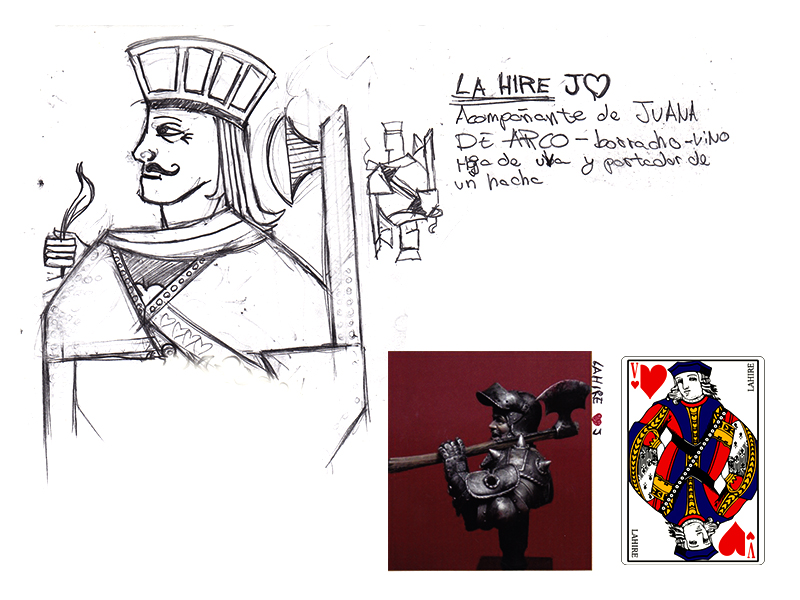 LA HIRE J♡
Acompañante de JUANA
DE ARCO - borracho - vino
Hoja de uva y portador de
un hacha
LAHIRE ♥ J
V
LAHIRE
LAHIRE
V